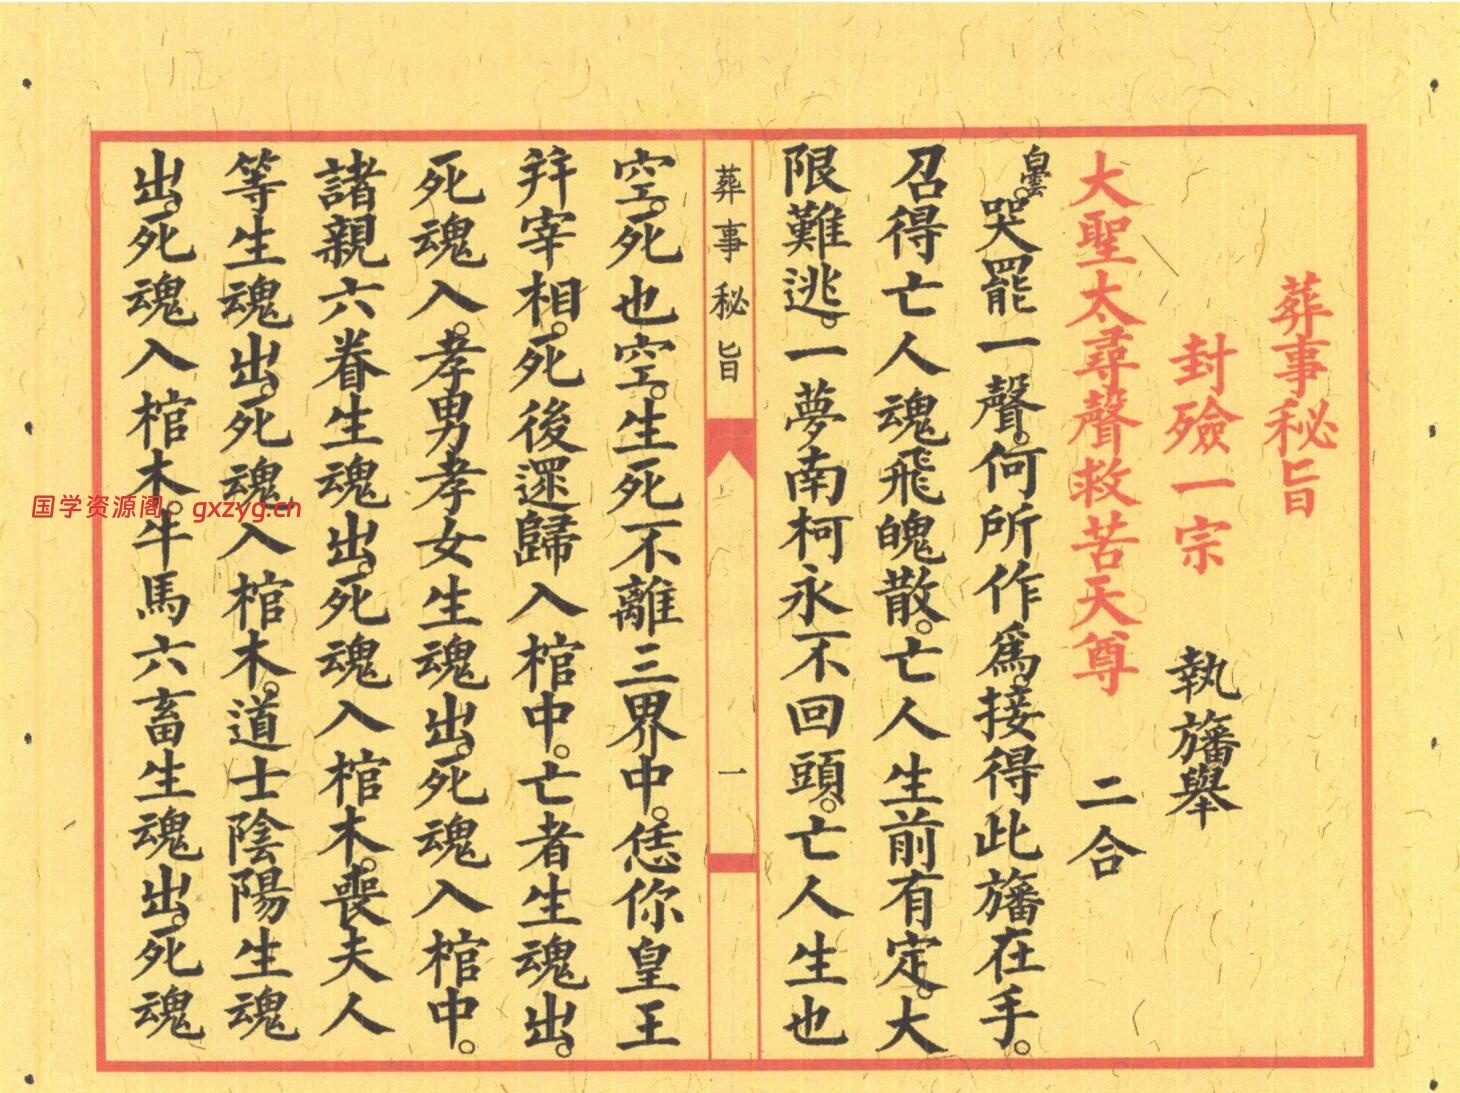 葬事秘旨
封殮一宗 執旛舉
大聖太尋聲救苦天尊 二合
白雲。哭罷一聲。何所作爲。接得此旛在手。
召得亡人魂飛魄散。亡人生前有定。大
限難逃。一夢南柯永不回頭。亡人生也
葬事秘旨 一
空。死也空。生死不離三界中。恁你皇王
并宰相。死後還歸入棺中。亡者生魂出。
死魂入。孝男孝女生魂出。死魂入棺中。
諸親六眷生魂出。死魂入棺木。喪夫人
等生魂出。死魂入棺木。道士陰陽生魂
出。死魂入棺木。牛馬六畜生魂出。死魂
国学资源阁：gxzyg.cn